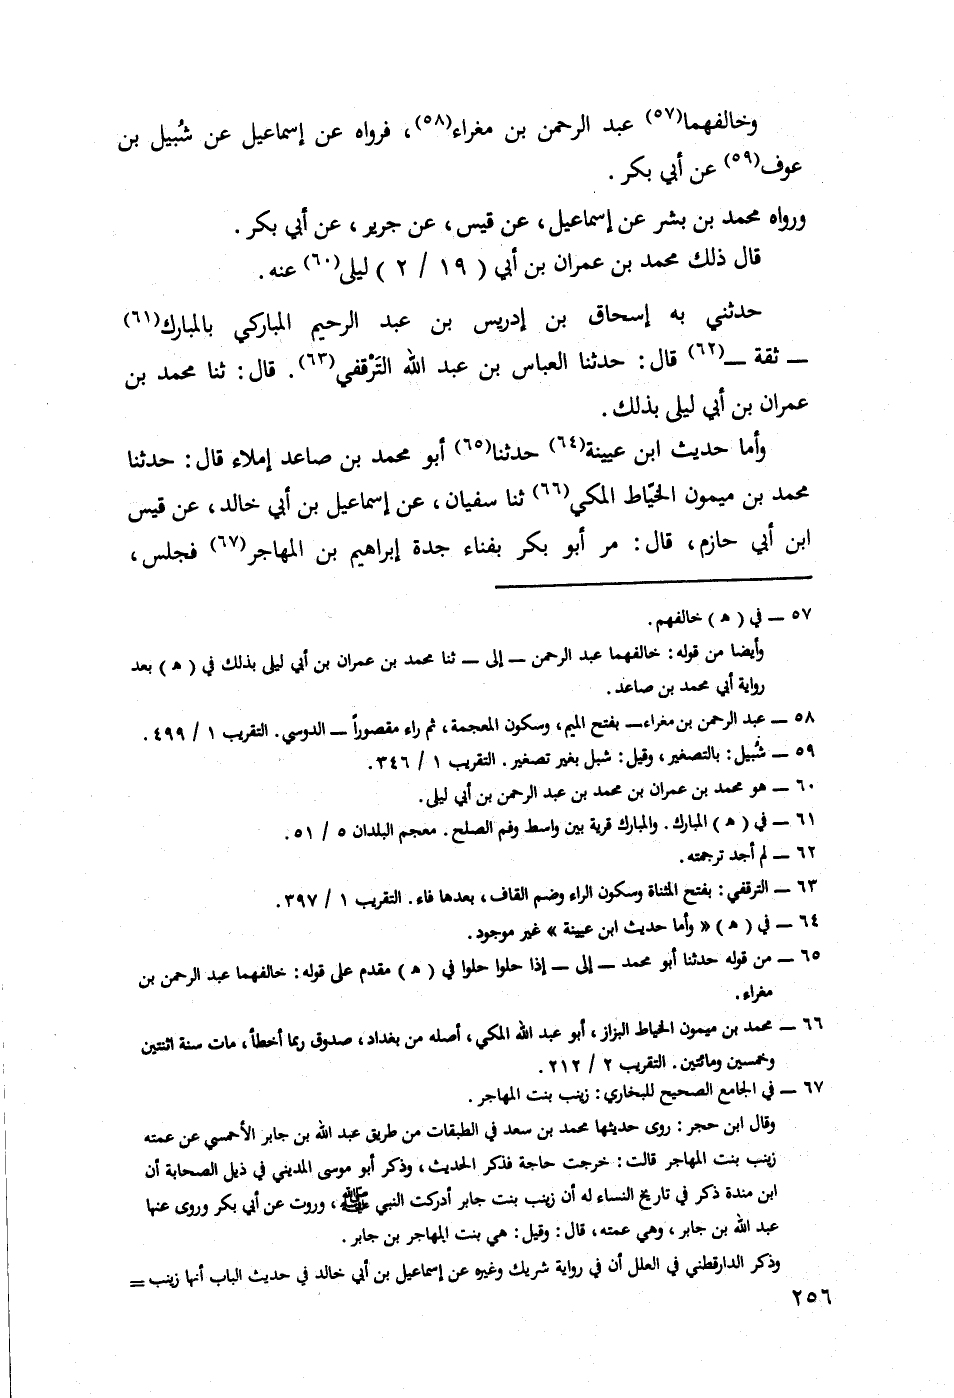 وخالفهما(٥٧) عبد الرحمن بن مغراء(٥٨)، فرواه عن إسماعيل عن شُبيل بن
عوف(٥٩) عن أبي بكر .
ورواه محمد بن بشر عن إسماعيل، عن قيس، عن جرير، عن أبي بكر .
قال ذلك محمد بن عمران بن أبي ( ١٩ / ٢ ) ليلى(٦٠) عنه.
حدثني به إسحاق بن إدريس بن عبد الرحيم المباركي بالمبارك(٦١)
ــ ثقة ــ(٦٢) قال: حدثنا العباس بن عبد الله التَرْقفي(٦٣). قال: ثنا محمد بن
عمران بن أبي ليلى بذلك.
وأما حديث ابن عيينة(٦٤) حدثنا(٦٥) أبو محمد بن صاعد إملاء قال: حدثنا
محمد بن ميمون الخيّاط المكي(٦٦) ثنا سفيان، عن إسماعيل بن أبي خالد، عن قيس
ابن أبي حازم، قال: مر أبو بكر بفناء جدة إبراهيم بن المهاجر(٦٧) فجلس،
٥٧ ــ في ( هـ ) خالفهم.
وأيضا من قوله: خالفهما عبد الرحمن ــ إلى ــ ثنا محمد بن عمران بن أبي ليلى بذلك في ( هـ ) بعد
رواية أبي محمد بن صاعد.
٥٨ ــ عبد الرحمن بن مغراء ــ بفتح الميم، وسكون المعجمة، ثم راء مقصوراً ــ الدوسي. التقريب ١ / ٤٩٩.
٥٩ ــ شُبيل: بالتصغير، وقيل: شبل بغير تصغير. التقريب ١ / ٣٤٦.
٦٠ ــ هو محمد بن عمران بن محمد بن عبد الرحمن بن أبي ليلى.
٦١ ــ في ( هـ ) المبارك. والمبارك قرية بين واسط وفم الصلح. معجم البلدان ٥ / ٥١.
٦٢ ــ لم أجد ترجمته.
٦٣ ــ الترقفي: بفتح المثناة وسكون الراء وضم القاف، بعدها فاء. التقريب ١ / ٣٩٧.
٦٤ ــ في ( هـ ) « وأما حديث ابن عيينة » غير موجود.
٦٥ ــ من قوله حدثنا أبو محمد ــ إلى ــ إذا حلوا حلوا في ( هـ ) مقدم على قوله: خالفهما عبد الرحمن بن
مغراء.
٦٦ ــ محمد بن ميمون الخياط البزاز، أبو عبد الله المكي، أصله من بغداد، صدوق ربما أخطأ، مات سنة اثنتين
وخمسين ومائتين. التقريب ٢ / ٢١٢.
٦٧ ــ في الجامع الصحيح للبخاري: زينب بنت المهاجر.
وقال ابن حجر: روى حديثها محمد بن سعد في الطبقات من طريق عبد الله بن جابر الأحمسي عن عمته
زينب بنت المهاجر قالت: خرجت حاجة فذكر الحديث، وذكر أبو موسى المديني في ذيل الصحابة أن
ابن مندة ذكر في تاريخ النساء له أن زينب بنت جابر أدركت النبي ﷺ، وروت عن أبي بكر وروى عنها
عبد الله بن جابر، وهي عمته، قال: وقيل: هي بنت المهاجر بن جابر.
وذكر الدارقطني في العلل أن في رواية شريك وغيره عن إسماعيل بن أبي خالد في حديث الباب أنها زينب =
٢٥٦